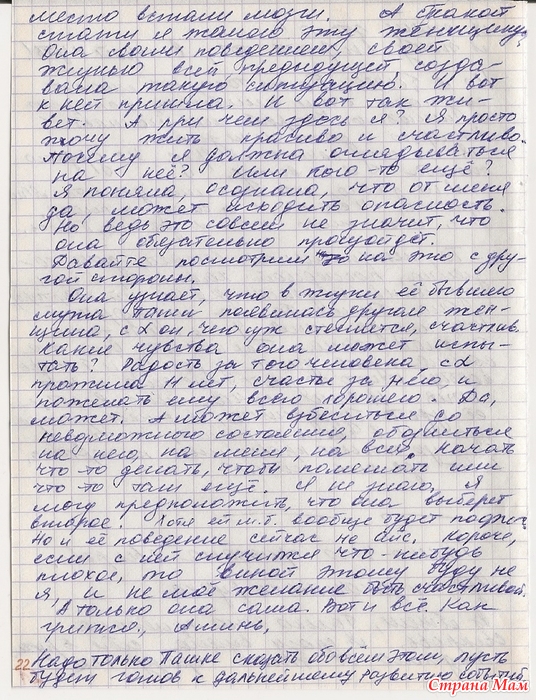 место встали мозги. А
стати я жалею эту женщину.
Она своим поведением, своей
жизнью всей предыдущей созда-
вала такую ситуацию. И вот
к ней пришла. И вот так жи-
вет. А при чем здесь я? Я просто
хочу жить красиво и счастливо.
Почему я должна оглядываться
на неё? Или кого-то ещё?
Я поняла, осознала, что от меня
да, может исходить опасность.
Но ведь это совсем не значит, что
она обязательно произойдёт.
Давайте посмотрим на это с дру-
гой стороны.
Она узнает, что в жизни её бывшего
мужа Паши появилась другая жен-
щина, с он, чего уж стесняется, счастлив
Какие чувства она может испы-
тать? Радость за того человека, с
прожила N лет, счастье за него, и
пожелать ему всего хорошего. Да,
может. А может взбеситься до
невозможного состояния, обозлиться
на него, на меня, на всех, начать
что-то делать, чтобы помешать или
что-то там ещё. Я не знаю, Я
могу предположить, что она выберет
второе. Хотя ей м.т. вообще будет
Но и её поведение сейчас не айс, короче,
если с ней случится что-нибудь
плохое, то виной этому буду не
я, и не моё желание быть счастливой
А только она сама. Вот и все. Как
грится, Аминь,
22 Надо только Пашке сказать обо всём этом, пусть
будет готов к дальнейшему развитию событий
Страна Мам